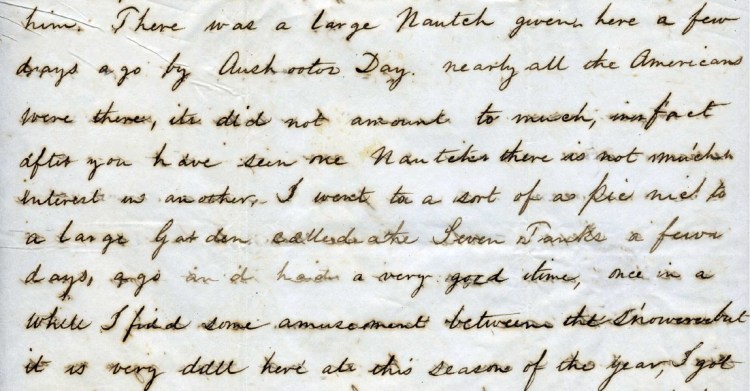 him. There was a large Nautch given here a few
days ago by Aushootos Day. nearly all the Americans
were there, its did not amount to much, in fact
after you have seen one Nautch there is not much
interest in another, I went to a sort of a Pic nick to
a large Garden called the Seven Tanks a few
days, ago and had a very good time, once in a
while I find some amusement between the showers but
it is very ddll here at this season of the year, I got